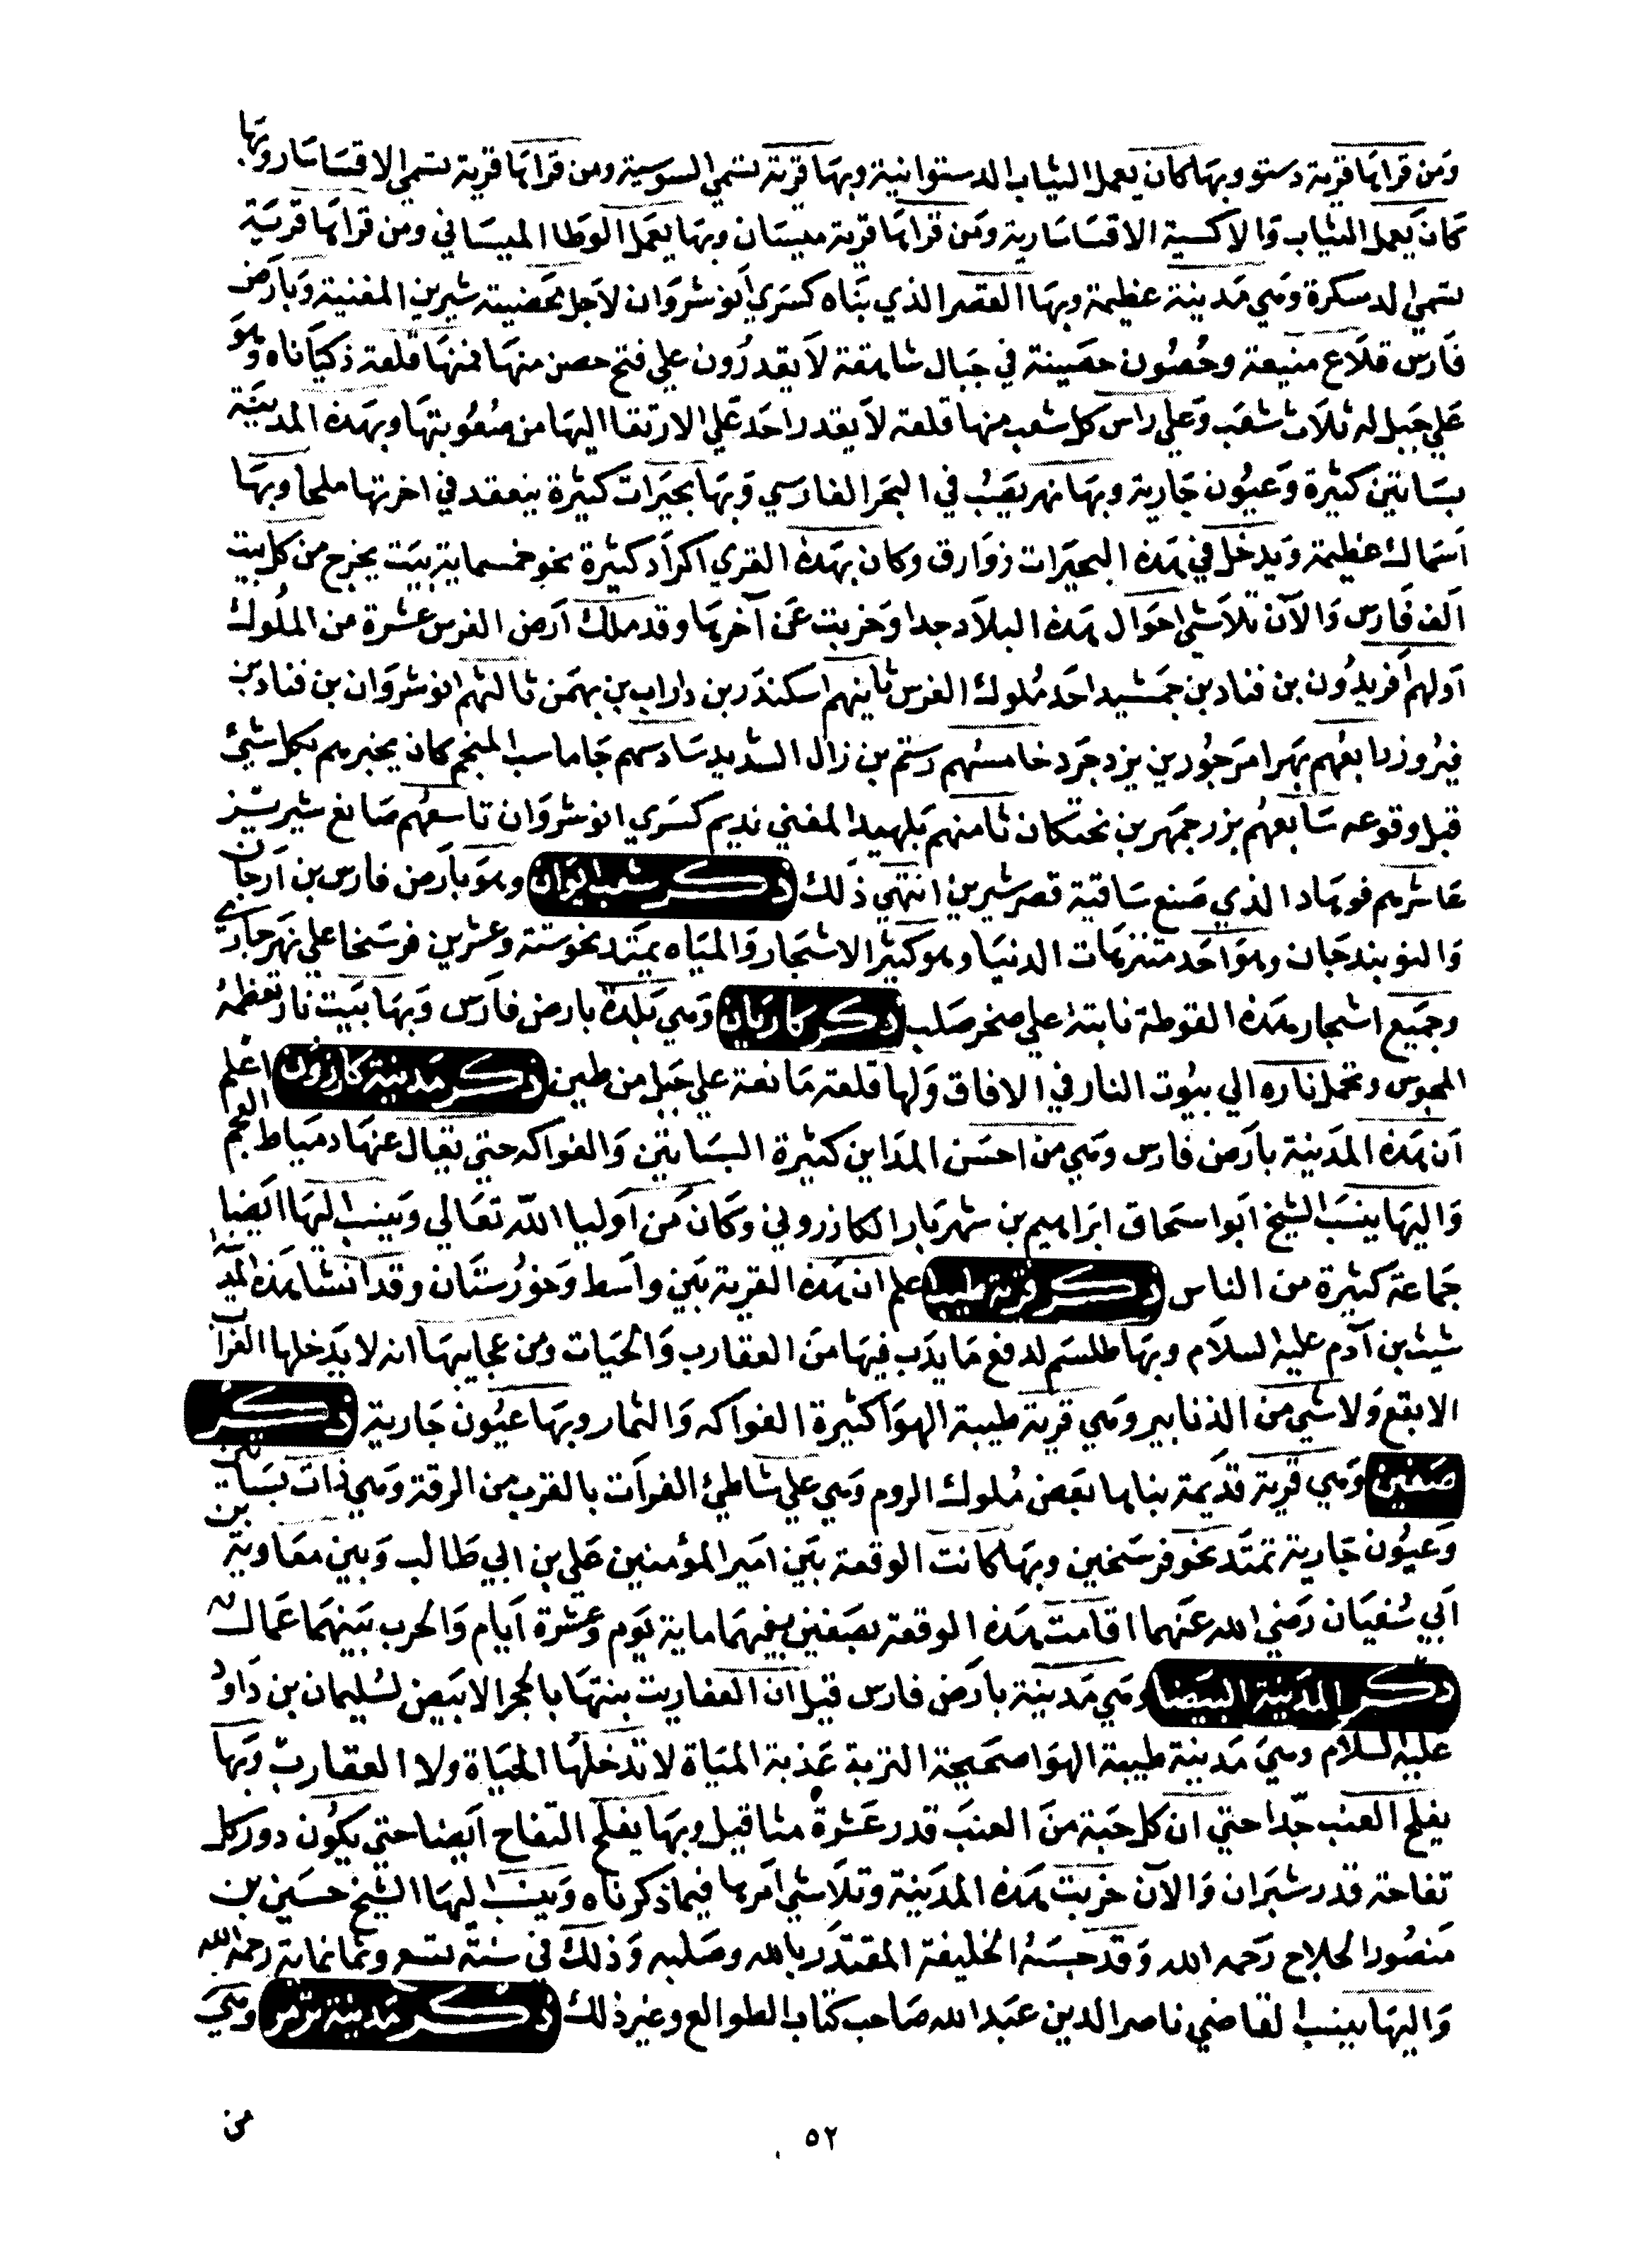 ومن قراها قرية دستو وبها كان يعمل الثياب الدستوانية وبها قرية تسمي السوسية ومن قراها قرية تسمي الاقساسار وبها
كان يعمل الثياب والاكسية الاقساسارية ومن قراها قرية ميسان وبها يعمل الوطا الميساني ومن قراها قرية
تسمي الدسكرة وهي مدينة عظيمة وبها القصر الذي بناه كسري انوشروان لاجل شيرين المغنية وبارض
فارس قلاع منيعة وحصون حصينة في جبال شاهقة لا يقدرون علي فتح حصن منها فمنها قلعة ذكياناه وهو
علي جبل له ثلاث شعب وعلي راس كل شعب منها قلعة لا يقدر احد علي الارتقا اليها من صعوبتها وبهذه المدينة
بساتين كثيرة وعيون جارية وبها نهر يصب في البحر الفارسي وبها بحيرات كثيرة ينعقد في اخرتها ملحا وبها
اسماك عظيمة ويدخل في هذه البحيرات زوارق وكان بهذه القري اكراد كثيرة نحو خمسماية بيت يخرج من كل بيت
الف فارس والآن تلاشي احوال هذه البلاد جدا وخربت عن آخرها وقد ملك ارض الفرس عشرة من الملوك
اولهم افريدون بن قناد بن جمشيد احد ملوك الفرس ثانيهم اسكندر بن داراب بن بهمن ثالثهم انوشروان بن قناد بن
فيروز رابعهم بهرامرجور بن يزدجرد خامسهم رستم بن زال الشديد سادسهم جاماسب المنجم كان يخبرهم بكل شيئ
قبل وقوعه سابعهم بزرجمهر بن نحتكان ثامنهم بلهبد المغني نديم كسري انوشروان تاسعهم صانع شبر شيز
عاشرهم فوهاد الذي صنع ساقية قصر شيرين انتهي ذلك ذكر شعب بوان وهو بارض فارس بن ارجان
والنوبندجان وهو احد متنزهات الدنيا وهو كثير الاشجار والمياه يمتد نحو ستة وعشرين فرسخا علي نهر جاري
وجميع اشجار هذه الغوطة نابتة علي صخر صلب ذكر كاريان وهي بلدة بارض فارس وبها بيت نار تعظمه
المجوس وتحمل ناره الي بيوت النار في الافاق ولها قلعة مانعة علي جبل من طين ذكر مدينة كازرون اعلم
ان هذه المدينة بارض فارس وهي من احسن المداين كثيرة البساتين والفواكه حتي يقال عنها دمياط العجم
واليها ينسب الشيخ ابو اسحاق ابراهيم بن شهريار الكازروني وكان من اوليا الله تعالي وينسب اليها ايضا
جماعة كثيرة من الناس ذكر قرية طيب اعلم ان هذه القرية بين واسط وخوزستان وقد انشا هذه المدينة
شيث بن آدم عليه السلام وبها طلسم لدفع ما يدب فيها من العقارب والحيات ومن عجايبها انه لا يدخلها الغراب
الابقع ولا شي من الذنابير وهي قرية طيبة الهوا كثيرة الفواكه والثمار وبها عيون جارية ذكر
صفين وهي قرية قديمة بناها بعض ملوك الروم وهي علي شاطئ الفرات بالقرب من الرقة وهي ذات بساتين
وعيون جارية تمتد نحو فرسخين وبها كانت الوقعة بين امير المؤمنين علي بن ابي طالب وبين معاوية بن
ابي سفيان رضي الله عنهما اقامت هذه الوقعة بصفين بينهما ماية يوم وعشرة ايام والحرب بينهما عمال
ذكر المدينة البيضا وهي مدينة بارض فارس قيل ان العفاريت بنتها بالحجر الابيض لسليمان بن داود
عليه السلام وهي مدينة طيبة الهوا صحيحة التربة عذبة المياة لا تدخلها الحياة ولا العقارب وبها
يفلح العنب جدا حتي ان كل حبة من العنب قدر عشرة مثاقيل وبها يفلح التفاح ايضا حتي يكون دور كل
تفاحة قدر شبران والآن خربت هذه المدينة وتلاشي امرها فيما ذكرناه وينسب اليها الشيخ حسين بن
منصور الحلاج رحمه الله وقد حبسه الخليفة المقتدر بالله وصلبه وذلك في سنة تسع وثمانماية رحمة الله
واليها ينسب القاضي ناصر الدين عبد الله صاحب كتاب الطوالع وغير ذلك ذكر مدينة تستر وهي
من
٥٢